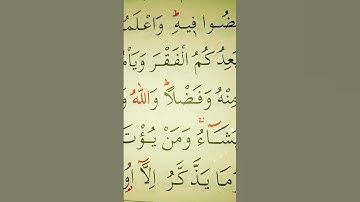 ضُوا فِيهِۜ وَاعْلَمُ
عِدُكُمُ الْفَقْرَ وَيَاْمُ
مِنْهُ وَفَضْلًاۜ وَاللّٰهُ وَ
يَشَٓاءُۚ وَمَنْ يُؤْتَ
وَمَا يَذَّكَّرُ اِلَّٓا اُو